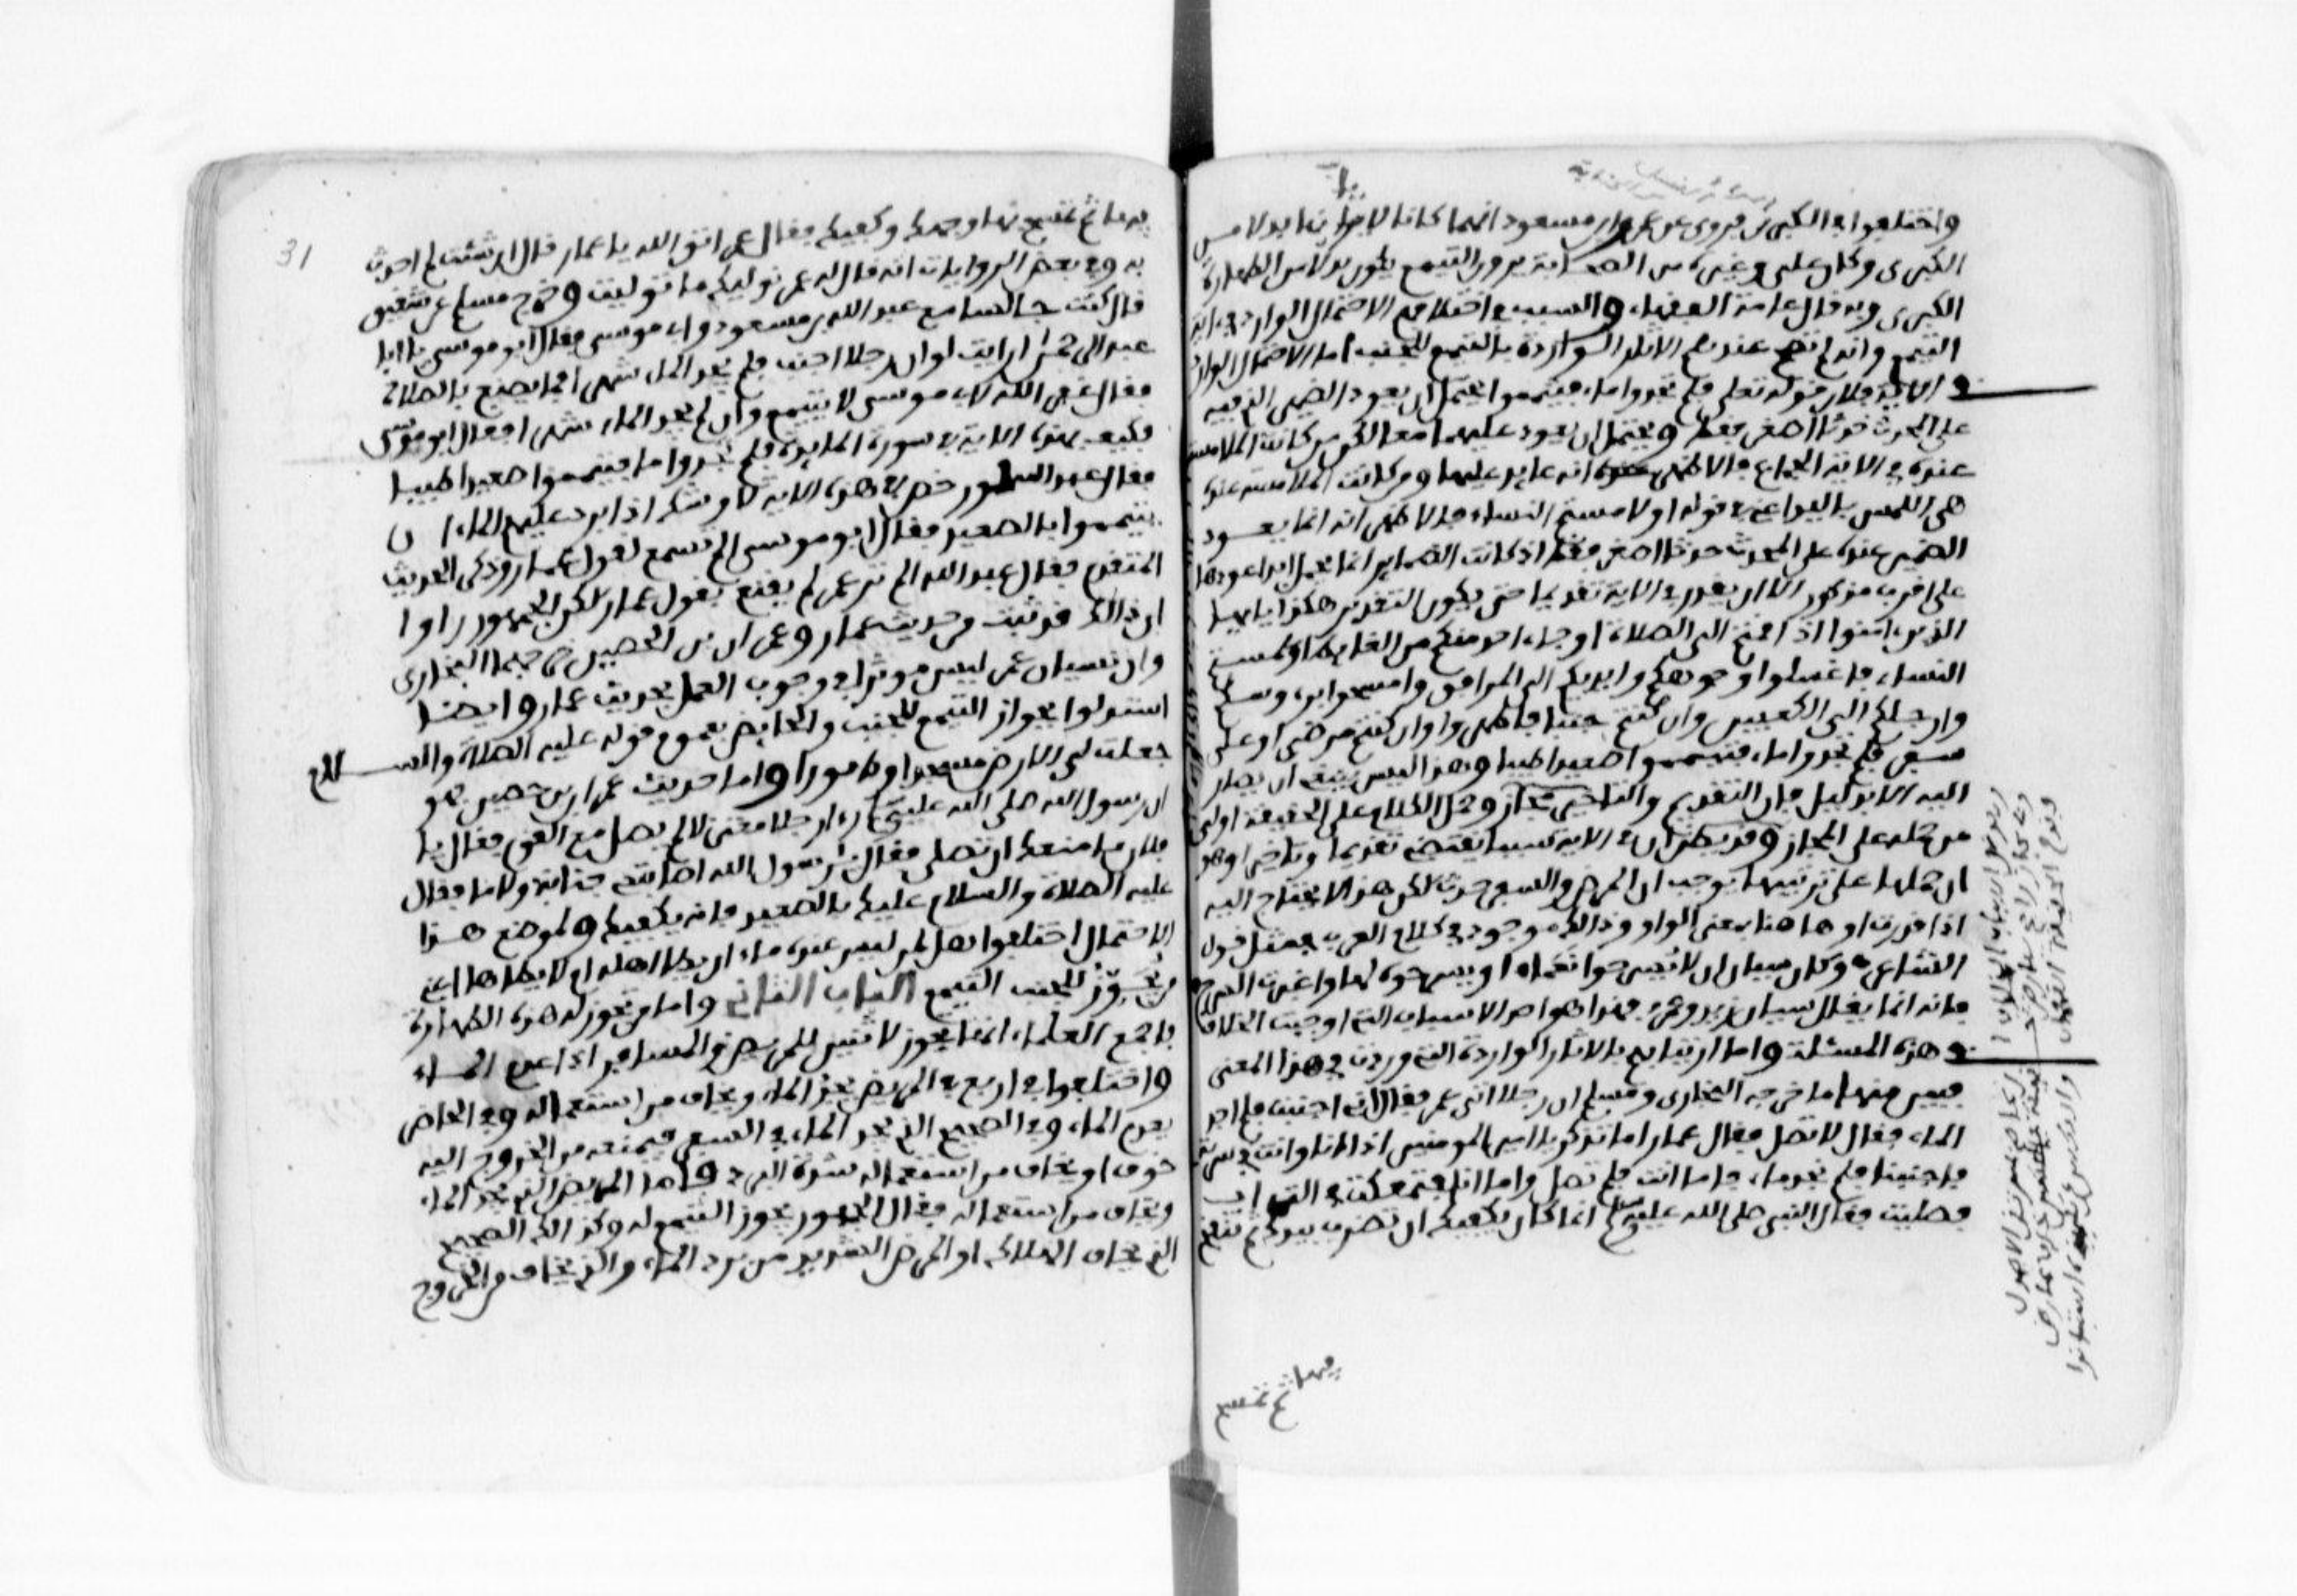 واختلفوا في الكبرى فروي عن عمر وابن مسعود انهما كانا لا يريانها بدلا من
الكبرى وكان علي وغيره من الصحابة يرون التيمم يكون بدلا من الطهارة
الكبرى وبه قال عامة الفقهاء والسبب في اختلافهم الاحتمال الوارد في اية
التيمم وانه لم تصح عندهم الاثار الواردة بالتيمم للجنب اما الاحتمال الوارد
في الاية فلان قوله تعلى فلم تجدوا ماء فتيمموا يحتمل ان يعود الضمير الذي فيه
على المحدث حدثا اصغر فقط ويحتمل ان يعود عليهما معا لكن من كانت الملامسة
عنده في الاية الجماع فالاظهر انه عايد عليهما ومن كانت الملامسة عنده
هي اللمس باليد اعني في قوله او لامستم النساء فالاظهر انه انما يعود
الضمير عنده على المحدث حدثا اصغر فقط اذ كانت الضماير انما يحمل ابدا عودها
على اقرب مذكور الا ان يقدر في الاية تقديما حتى يكون التقدير هكذا يا ايها
الذين امنوا اذا قمتم الى الصلاة او جاء احد منكم من الغايط او لمستم
النساء فاغسلوا وجوهكم وايديكم الى المرافق وامسحوا برءوسكم
وارجلكم الى الكعبين وان كنتم جنبا فاطهروا وان كنتم مرضى او على
سفر فلم تجدوا ماء فتيمموا صعيدا طيبا وهذا ليس ينبغي ان يصار
اليه الا بدليل فان التقديم والتاخير مجاز وحمل الكلام على الحقيقة اولى
من حمله على المجاز وقد يظن ان في الاية سببا يقتضي تقديما وتاخيرا وهو
ان حملها على ترتيبها يوجب ان المرض والسفر حدث لكن هذا لا يحتاج اليه
اذا قدرت او هاهنا بمعنى الواو وذالك موجود في كلام العرب في مثل قول
الشاعر وكان سيان ان لا يسرحوا نعما او يسرحوه بها واغبرت السرح
فانه انما يقال سيان زيد وعمرو فهذا هو احد الاسباب التي اوجبت الخلاف
في هذه المسئلة واما ارتيابهم بالاثار الواردة التي وردت في هذا المعنى
فبين منها ما خرجه البخاري ومسلم ان رجلا اتى عمر فقال اني اجنبت فلم اجد
الماء فقال لا تصل فقال عمار اما تذكر يا امير المومنين اذ انا وانت في سرية
فاجنبنا فلم نجد ماء فاما انت فلم تصل واما انا فتمعكت في التراب
فصليت فقال النبي صلى الله عليه وسلم انما كان يكفيك ان تضرب بيديك ثم تنفخ
فيهما ثم تمسح
31
فيهما ثم تمسح بهما وجهك وكفيك فقال عمر اتق الله يا عمار قال ان شئت لم احدث
به وفي بعض الروايات انه قال له عمر نوليك ما توليت وخرج مسلم عن شقيق
قال كنت جالسا مع عبد الله بن مسعود وابي موسى فقال ابو موسى يا ابا
عبد الرحمن ارايت لو ان رجلا اجنب فلم يجد الماء شهرا كيف يصنع بالصلاة
فقال عبد الله لابي موسى لا يتيمم وان لم يجد الماء شهرا فقال ابو موسى
فكيف بهذه الاية في سورة المايدة فلم تجدوا ماء فتيمموا صعيدا طيبا
فقال عبد الله لو رخص لهم في هذه الاية لاوشك اذا برد عليهم الماء ان
يتيمموا بالصعيد فقال ابو موسى الم تسمع لقول عمار وذكر الحديث
المتقدم فقال عبد الله الم تر عمر لم يقنع بقول عمار لكن الجمهور راوا
ان ذالك قد ثبت من حديث عمار وعمران بن الحصين خرجهما البخاري
وان نسيان عمر ليس موثرا في وجوب العمل بحديث عمار وايضا
استدلوا بجواز التيمم للجنب والحايض بعموم قوله عليه الصلاة والسلام
جعلت لي الارض مسجدا وطهورا واما حديث عمران بن حصين فهو
ان رسول الله صلى الله عليه وسلم راى رجلا معتزلا لم يصل مع القوم فقال يا
فلان ما منعك ان تصلي فقال يا رسول الله اصابتني جنابة ولا ماء فقال
عليه الصلاة والسلام عليك بالصعيد فانه يكفيك ولموضع هذا
الاحتمال اختلفوا هل لمن ليس عنده ماء ان يطا اهله ام لا يطاها اعني
من يجوز للجنب التيمم الباب الثاني واما من تجوز له هذه الطهارة
فاجمع العلماء انها تجوز لاثنين للمريض والمسافر اذا عدم الماء
واختلفوا في اربع في المريض يجد الماء ويخاف من استعماله وفي الحاضر
يعدم الماء وفي الصحيح الذي يجد الماء في السفر فيمنعه من الخروج اليه
خوف او يخاف من استعماله شدة البرد فاما المريض الذي يجد الماء
ويخاف من استعماله فقال الجمهور يجوز التيمم له وكذالك الصحيح
الذي يخاف الهلاك او المرض الشديد من برد الماء والذي يخاف من الخروج